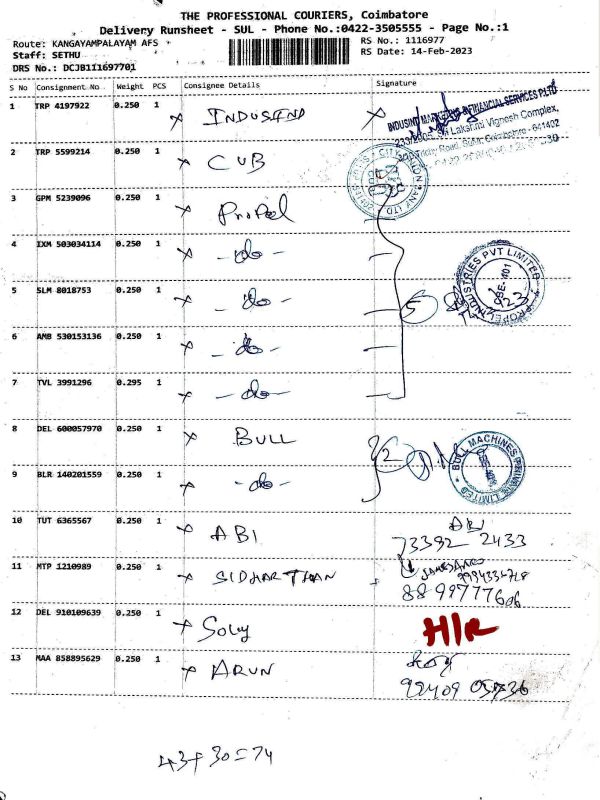 THE PROFESSIONAL COURIERS, Coimbatore
Delivery Runsheet - SUL - Phone No.:0422-3505555 - Page No.:1
Route: KANGAYAMPALAYAM AFS
RS No.: 1116977
Staff: SETHU
RS Date: 14-Feb-2023
DRS No.: DCJB111697701
S No Consignment No Weight PCS Consignee Details Signature
1 TRP 4197922 0.250 1 INDUSEND
INDUSIND MARKETING & FINANCIAL SERVICES P.LTD
233/2005, Sri Lakshmi Vignesh Complex,
Road, Sulur, Coimbatore - 641402
2 TRP 5599214 0.250 1 CUB
CITY UNION
3 GPM 5239096 0.250 1 Propel
4 IXM 503034114 0.250 1 -do-
PROPEL INDUSTRIES PVT LIMITED
5 SLM 8018753 0.250 1 -do- 5
6 AMB 530153136 0.250 1 -do-
7 TVL 3991296 0.295 1 -do-
8 DEL 600057970 0.250 1 BULL 2
BULL MACHINES PRIVATE LIMITED
9 BLR 140201559 0.250 1 -do-
10 TUT 6365567 0.250 1 ABI
73392 2433
11 MTP 1210989 0.250 1 SIDHARTHAN
12 DEL 910109639 0.250 1 Soluy
H/R
13 MAA 858895629 0.250 1 ARUN
43+30=74